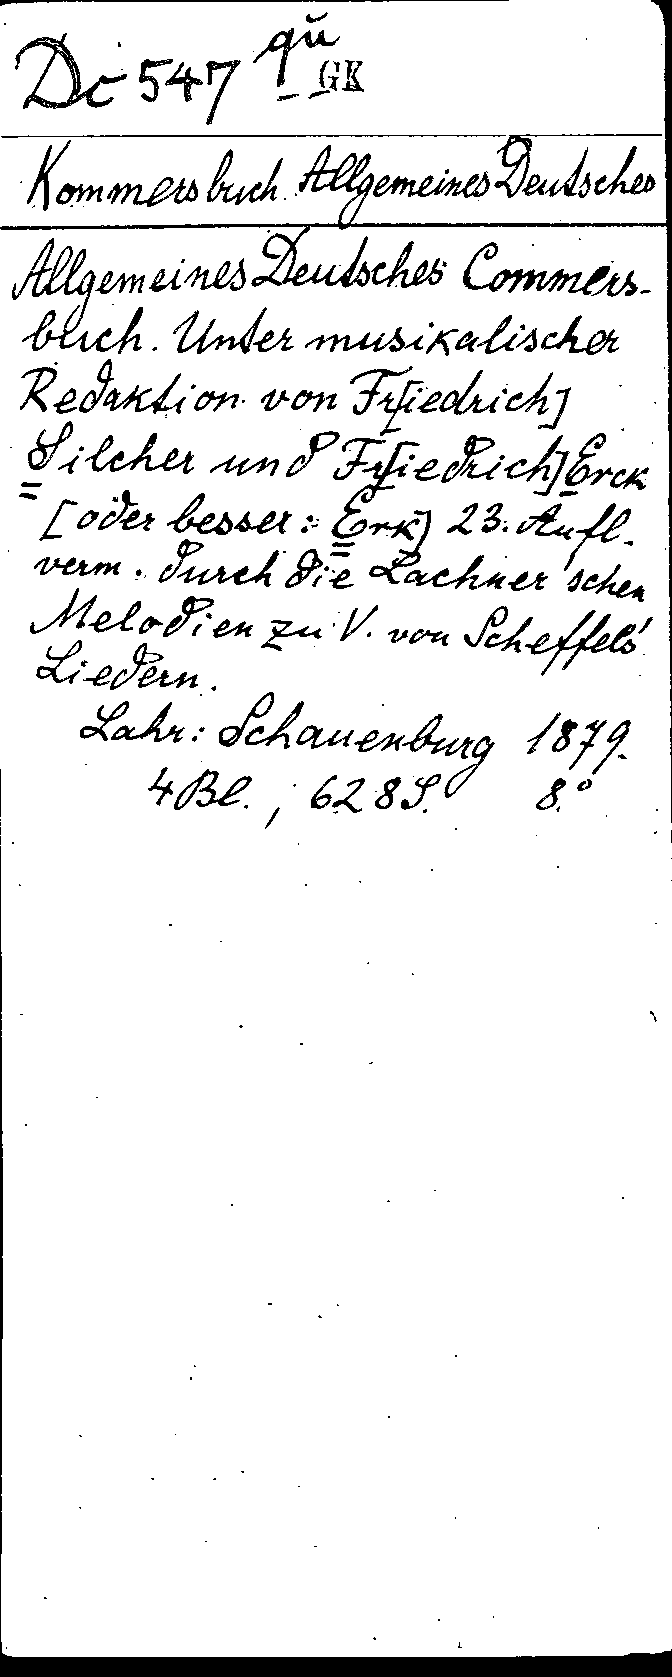 Dc 547 qu
GK
Kommersbuch Allgemeines Deutsches
Allgemeines Deutsches Commers-
buch. Unter musikalischer
Redaktion von Fr[iedrich]
Silcher und Fr[iedrich] Erck
[oder besser: Erk] 23. Aufl.
verm. durch die Lachner'schen
Melodien zu V. von Scheffels'
Liedern.
Lahr: Schauenburg 1879.
4 Bl., 628 S. 8.°